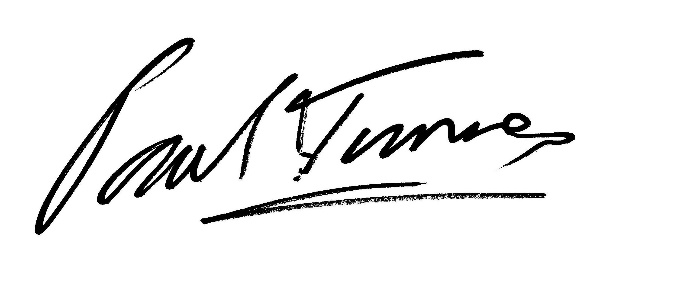 Paul Turner